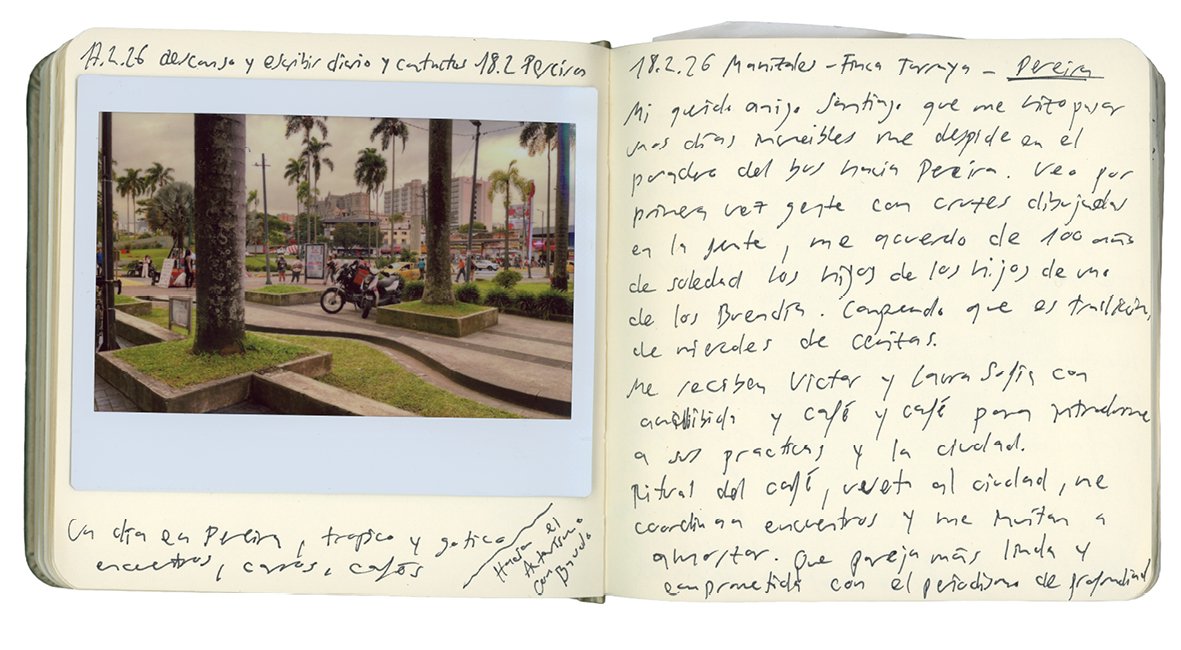 17.2.26 descanso y escribir diario y contactos 18.2 Pereira
Un día en Pereira, tropico y gotica
encuentros, carros, cafés
Hacia el
con
18.2.26 Manizales - Finca Tarraya - Pereira
Mi querido amigo Santiago que me hizo pasar
unos días increíbles me despide en el
paradero del bus hacia Pereira. Veo por
primera vez gente con cruces dibujadas
en la gente, me acuerdo de 100 años
de soledad los hijos de los hijos de uno
de los Buendía. Comprendo que es tradición,
de miercoles de cenitas.
Me reciben Victor y Laura Sofía con
y café y café para introducirme
a sus practicas y la ciudad.
Ritual del café, vuelta al ciudad, me
coordinan encuentros y me invitan a
almorzar. Que pareja más linda y
comprometida con el periodismo de profundidad